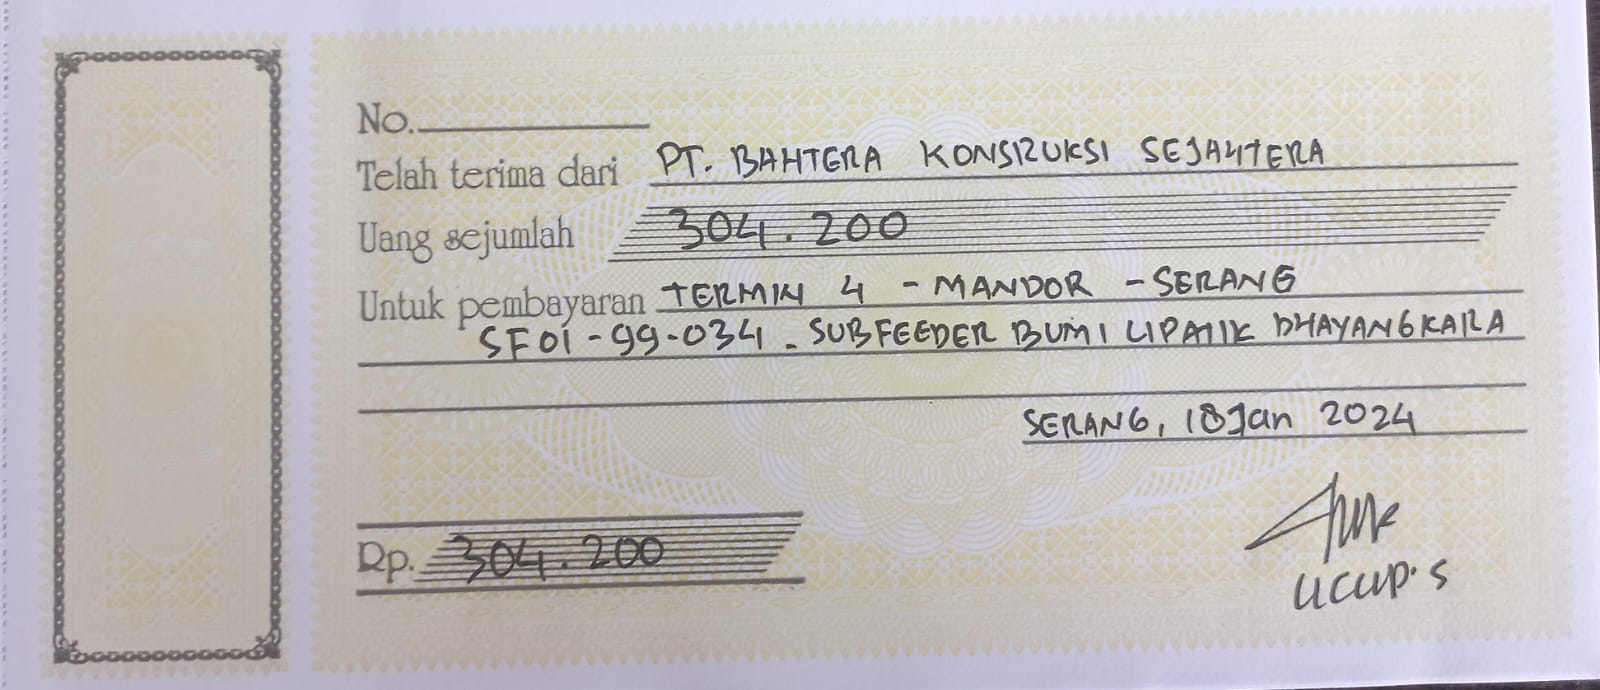 No.
Telah terima dari PT. BAHTERA KONSTRUKSI SEJAHTERA
Uang sejumlah 304.200
Untuk pembayaran TERMIN 4 - MANDOR - SERANG
SF01-99-034 - SUBFEEDER BUMI CIPATIK BHAYANGKARA
SERANG, 18 Jan 2024
Rp. 304.200
UCUP.S